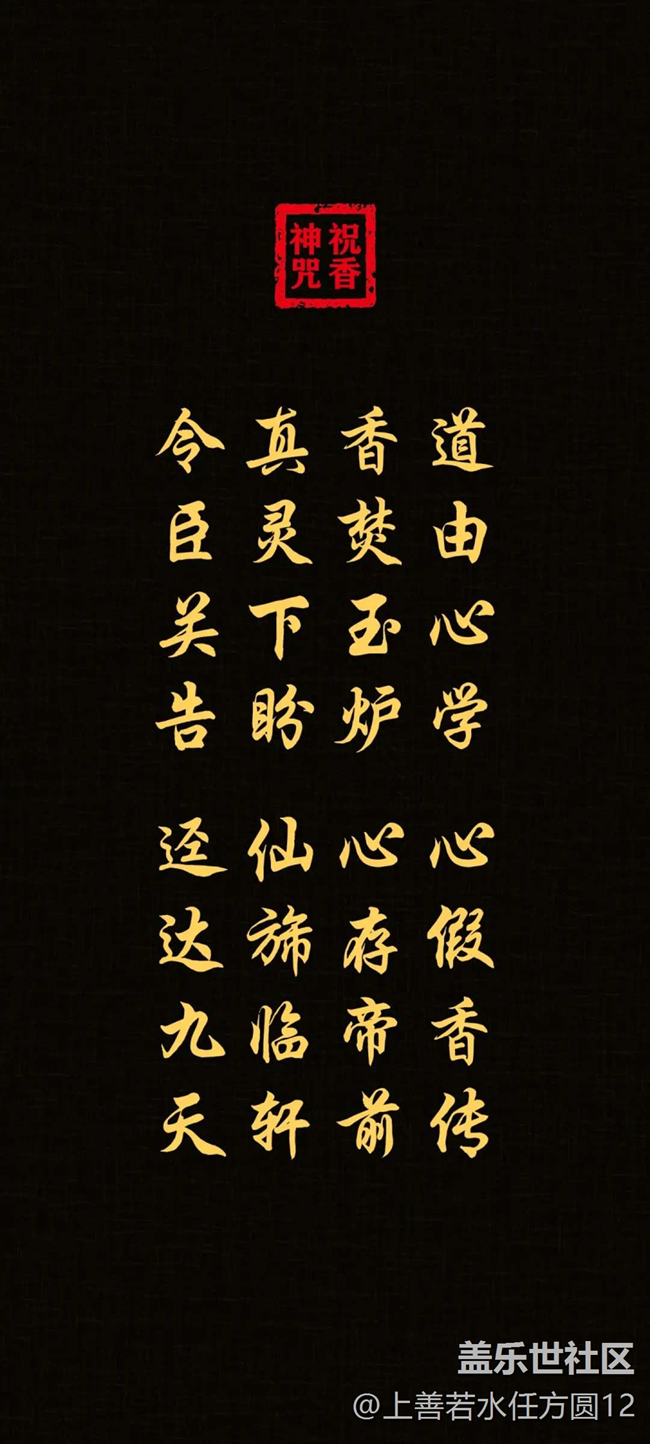 祝香
神咒
道由心学 心假香传
香焚玉炉 心存帝前
真灵下盼 仙旆临轩
令臣关告 迳达九天
盖乐世社区
@上善若水任方圆12